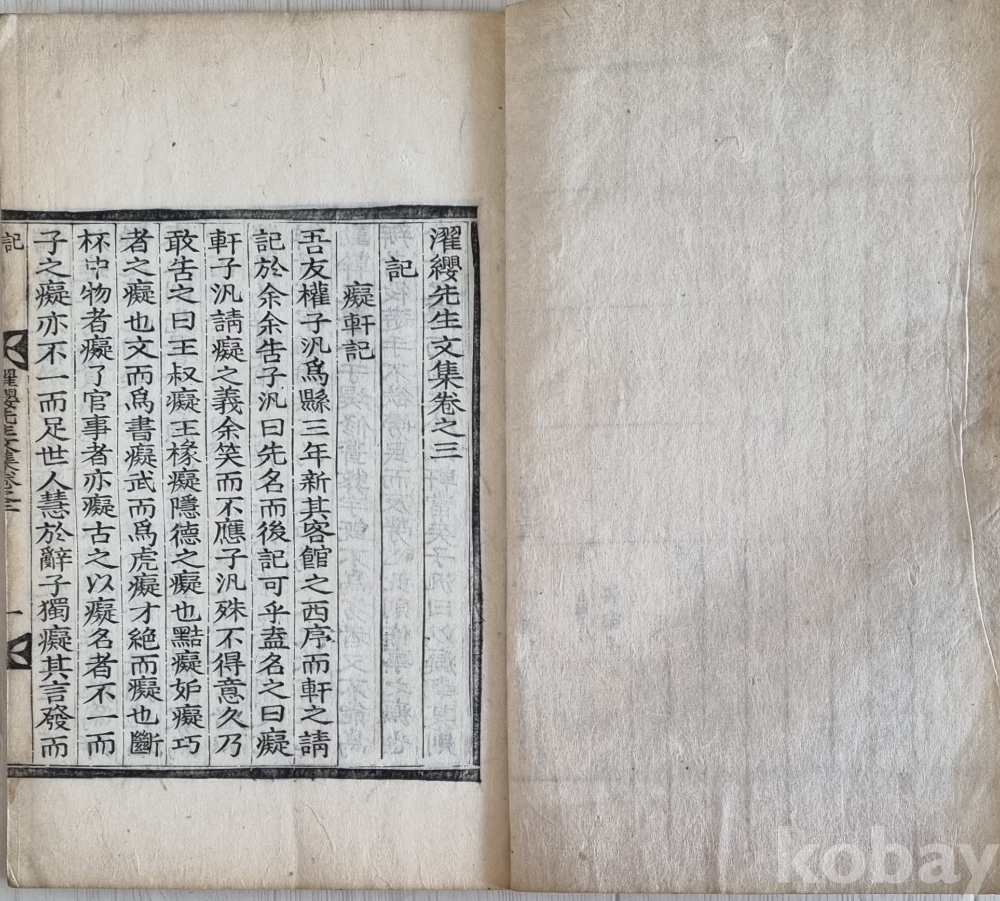 濯纓先生文集卷之三
記
癡軒記
吾友權子汎爲縣三年新其客館之西序而軒之請
記於余余告子汎曰先名而後記可乎盍名之曰癡
軒子汎請癡之義余笑而不應子汎殊不得意久乃
敢告之曰王叔癡王椽癡隱德之癡也黠癡妒癡巧
者之癡也文而爲書癡武而爲虎癡才絕而癡也斷
杯中物者癡了官事者亦癡古之以癡名者不一而
子之癡亦不一而足世人慧於辭子獨癡其言發而
記
濯纓先生文集卷之三
一
kobay